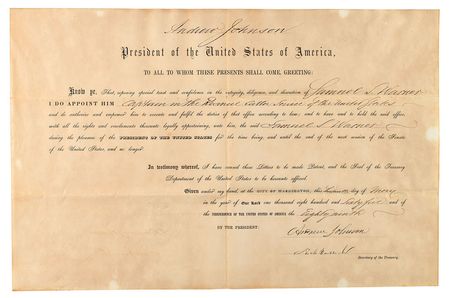 Andrew Johnson
President of the United States of America,
TO ALL TO WHOM THESE PRESENTS SHALL COME, GREETING:
Know ye, That, reposing special trust and confidence in the integrity, diligence, and discretion of Samuel S. Warner
I DO APPOINT HIM Captain in the Revenue Cutter Service of the United States
and do authorize and empower him to execute and fulfil the duties of that office according to law; and to have and to hold the said office,
with all the rights and emoluments thereunto legally appertaining, unto him, the said Samuel S. Warner
during the pleasure of the PRESIDENT OF THE UNITED STATES for the time being, and until the end of the next session of the Senate
of the United States, and no longer.
In testimony whereof, I have caused these Letters to be made Patent, and the Seal of the Treasury
Department of the United States to be hereunto affixed.
Given under my hand, at the CITY OF WASHINGTON, this day of May
in the year of Our Lord one thousand eight hundred and Sixty five and of
the INDEPENDENCE OF THE UNITED STATES OF AMERICA the Eighty ninth
BY THE PRESIDENT:
Andrew Johnson
Secretary of the Treasury.